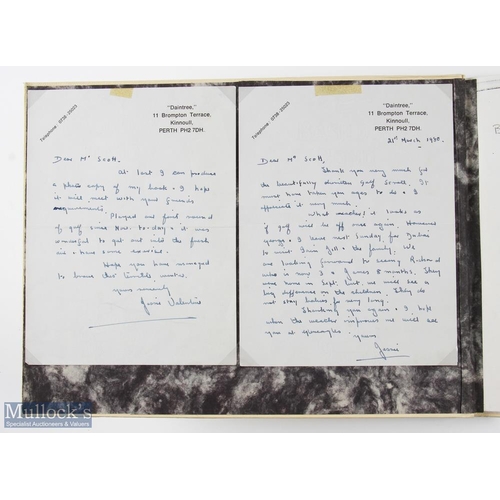 Telephone: 0738-25023
"Daintree,"
11 Brompton Terrace,
Kinnoull,
PERTH PH2 7DH.
Dear Mr Scott,
At last I can produce
a photo copy of my book & I hope
it will meet with your friend's
requirements. Played our first round
of golf since Nov. to-day & it was
wonderful to get out into the fresh
air & have some exercise.
Hope you have managed
to browse
yours sincerely
Jessie Valentine
Telephone: 0738-25023
"Daintree,"
11 Brompton Terrace,
Kinnoull,
PERTH PH2 7DH.
21st March 1980.
Dear Mr Scott,
Thank you very much for
the beautifully Golf Scroll. It
must have taken you ages to do & I
appreciate it very much.
What weather! it looks as
if golf will be off once again. However
I leave next Sunday for
to visit & the family. We
are looking forward to seeing Richard
who is now 3 & James 8 months. They
were home in Sept. but we will see a
big difference in the children. They do
not stay babies for very long.
Thanking you again & I hope
when the weather improves we will see
you at Gleneagles. yours
Jessie
Mullock's
Specialist Auctioneers & Valuers